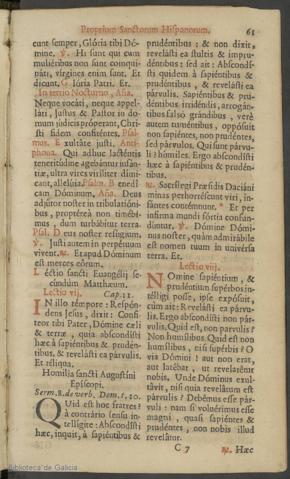 Proprium Sanctorum Hispanorum. 61
cunt semper, Glória tibi Dó-
mine. ℣. Hi sunt qui cum
muliéribus non sunt coinqui-
náti, vírgines enim sunt. Et
dicunt, Glória Patri. Et.
In tertio Nocturno, Aña.
Neque vocáti, neque appel-
láti, justus & Pastor in do-
mum judicis próperant, Chri-
sti fidem confiténtes, Psal-
mus. Exultáte justi. Anti-
phona. Qui adhuc lacténtis
teneritúdine agebántur infan-
tiæ, ultra vires viríliter dimi-
cant, allelúia. Psalm. Bened-
cam Dóminum, Aña. Deus
adjútor noster in tribulatióni-
bus, proptéreà non timébi-
mus, dum turbábitur terra.
Psal. Deus noster refugium.
℣. Justi autem in perpétuum
vivent. ℟. Et apud Dóminum
est merces eórum.
Léctio sancti Euangélij se-
cúndùm Matthæum.
Lectio vij. Cap. 11.
IN illo témpore: Respón-
dens Jesus, dixit: Confi-
teor tibi Pater, Dómine cæli
& terræ, quia abscondísti
hæc à sapiéntibus & prudén-
tibus, & revelásti ea párvulis.
Et réliqua.
Homilía sancti Augustíni
Epíscopi.
Serm. 8. de verb. Dom. t. 10.
Quid est hoc fratres?
à contrário sensu in-
telligite: Abscondísti
hæc, inquit, à sapiéntibus &
prudéntibus; & non dixit,
revelásti ea stultis & impru-
déntibus: sed ait: Abscondí-
sti quidem à sapiéntibus &
prudéntibus, & revelásti ea
párvulis. Sapiéntibus & pru-
déntibus irridéndis, arrogán-
tibus falsò grándibus, verè
autem tuméntibus, oppósuit
non sapiéntes, non prudéntes,
sed párvulos. Qui sunt párvu-
li? húmiles. Ergo abscondísti
hæc à sapiéntibus & prudén-
tibus.
℟. Sacrílegi Præsidis Daciáni
minas perhorréscunt viri, in-
fantes contémnunt. * Et per
infirma mundi fórtia confun-
dúntur. ℣. Dómine Dómi-
nus noster, quàm admirábile
est nomen tuum in univérsa
terra. Et.
Lectio viij.
NOmine sapiéntium, &
prudéntium supérbos in-
télligi posse, ipse expósuit,
cùm ait: Revelásti ea párvu-
lis. Ergo abscondísti non pár-
vulis. Quid est, non párvulis?
Non humílibus. Quid est non
humílibus, nisi supérbis? O
via Dómini! aut non erat,
aut latébat, ut revelarétur
nobis. Unde Dóminus exul-
távit, nisi quia revelátum est
párvulis? Debémus esse pár-
vuli: nam si voluérimus esse
magni, quasi sapiéntes &
prudéntes, non nobis illud
revelátur.
C 7 ℟. Hæc
Biblioteca de Galicia